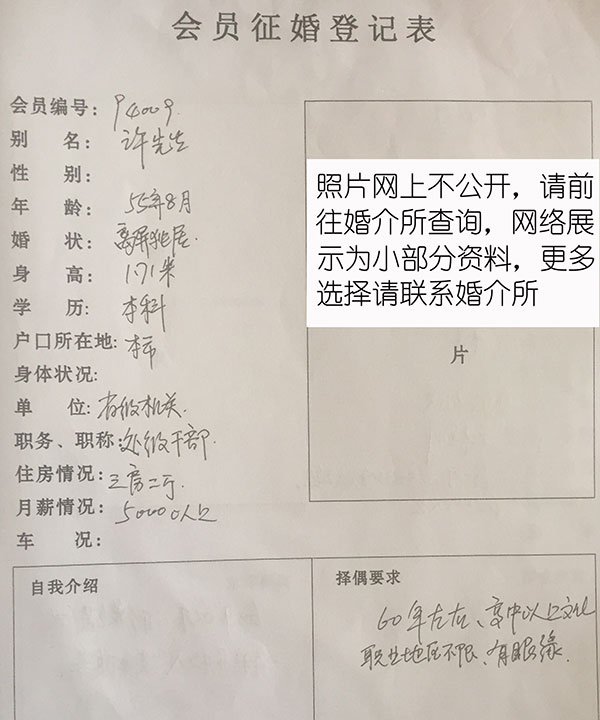 会员征婚登记表
会员编号: P4009
别 名: 许先生
性 别:
年 龄: 55年8月
婚 状: 离异独居.
身 高: 1.71米
学 历: 本科
户口所在地: 本市
身体状况:
单 位: 省级机关.
职务、职称: 处级干部.
住房情况: 三房二厅
月薪情况: 5000以上
车 况:
照片网上不公开，请前
往婚介所查询，网络展
示为小部分资料，更多
选择请联系婚介所
片
自我介绍
择偶要求
60年左右、高中以上文化
职业地区不限、有眼缘.